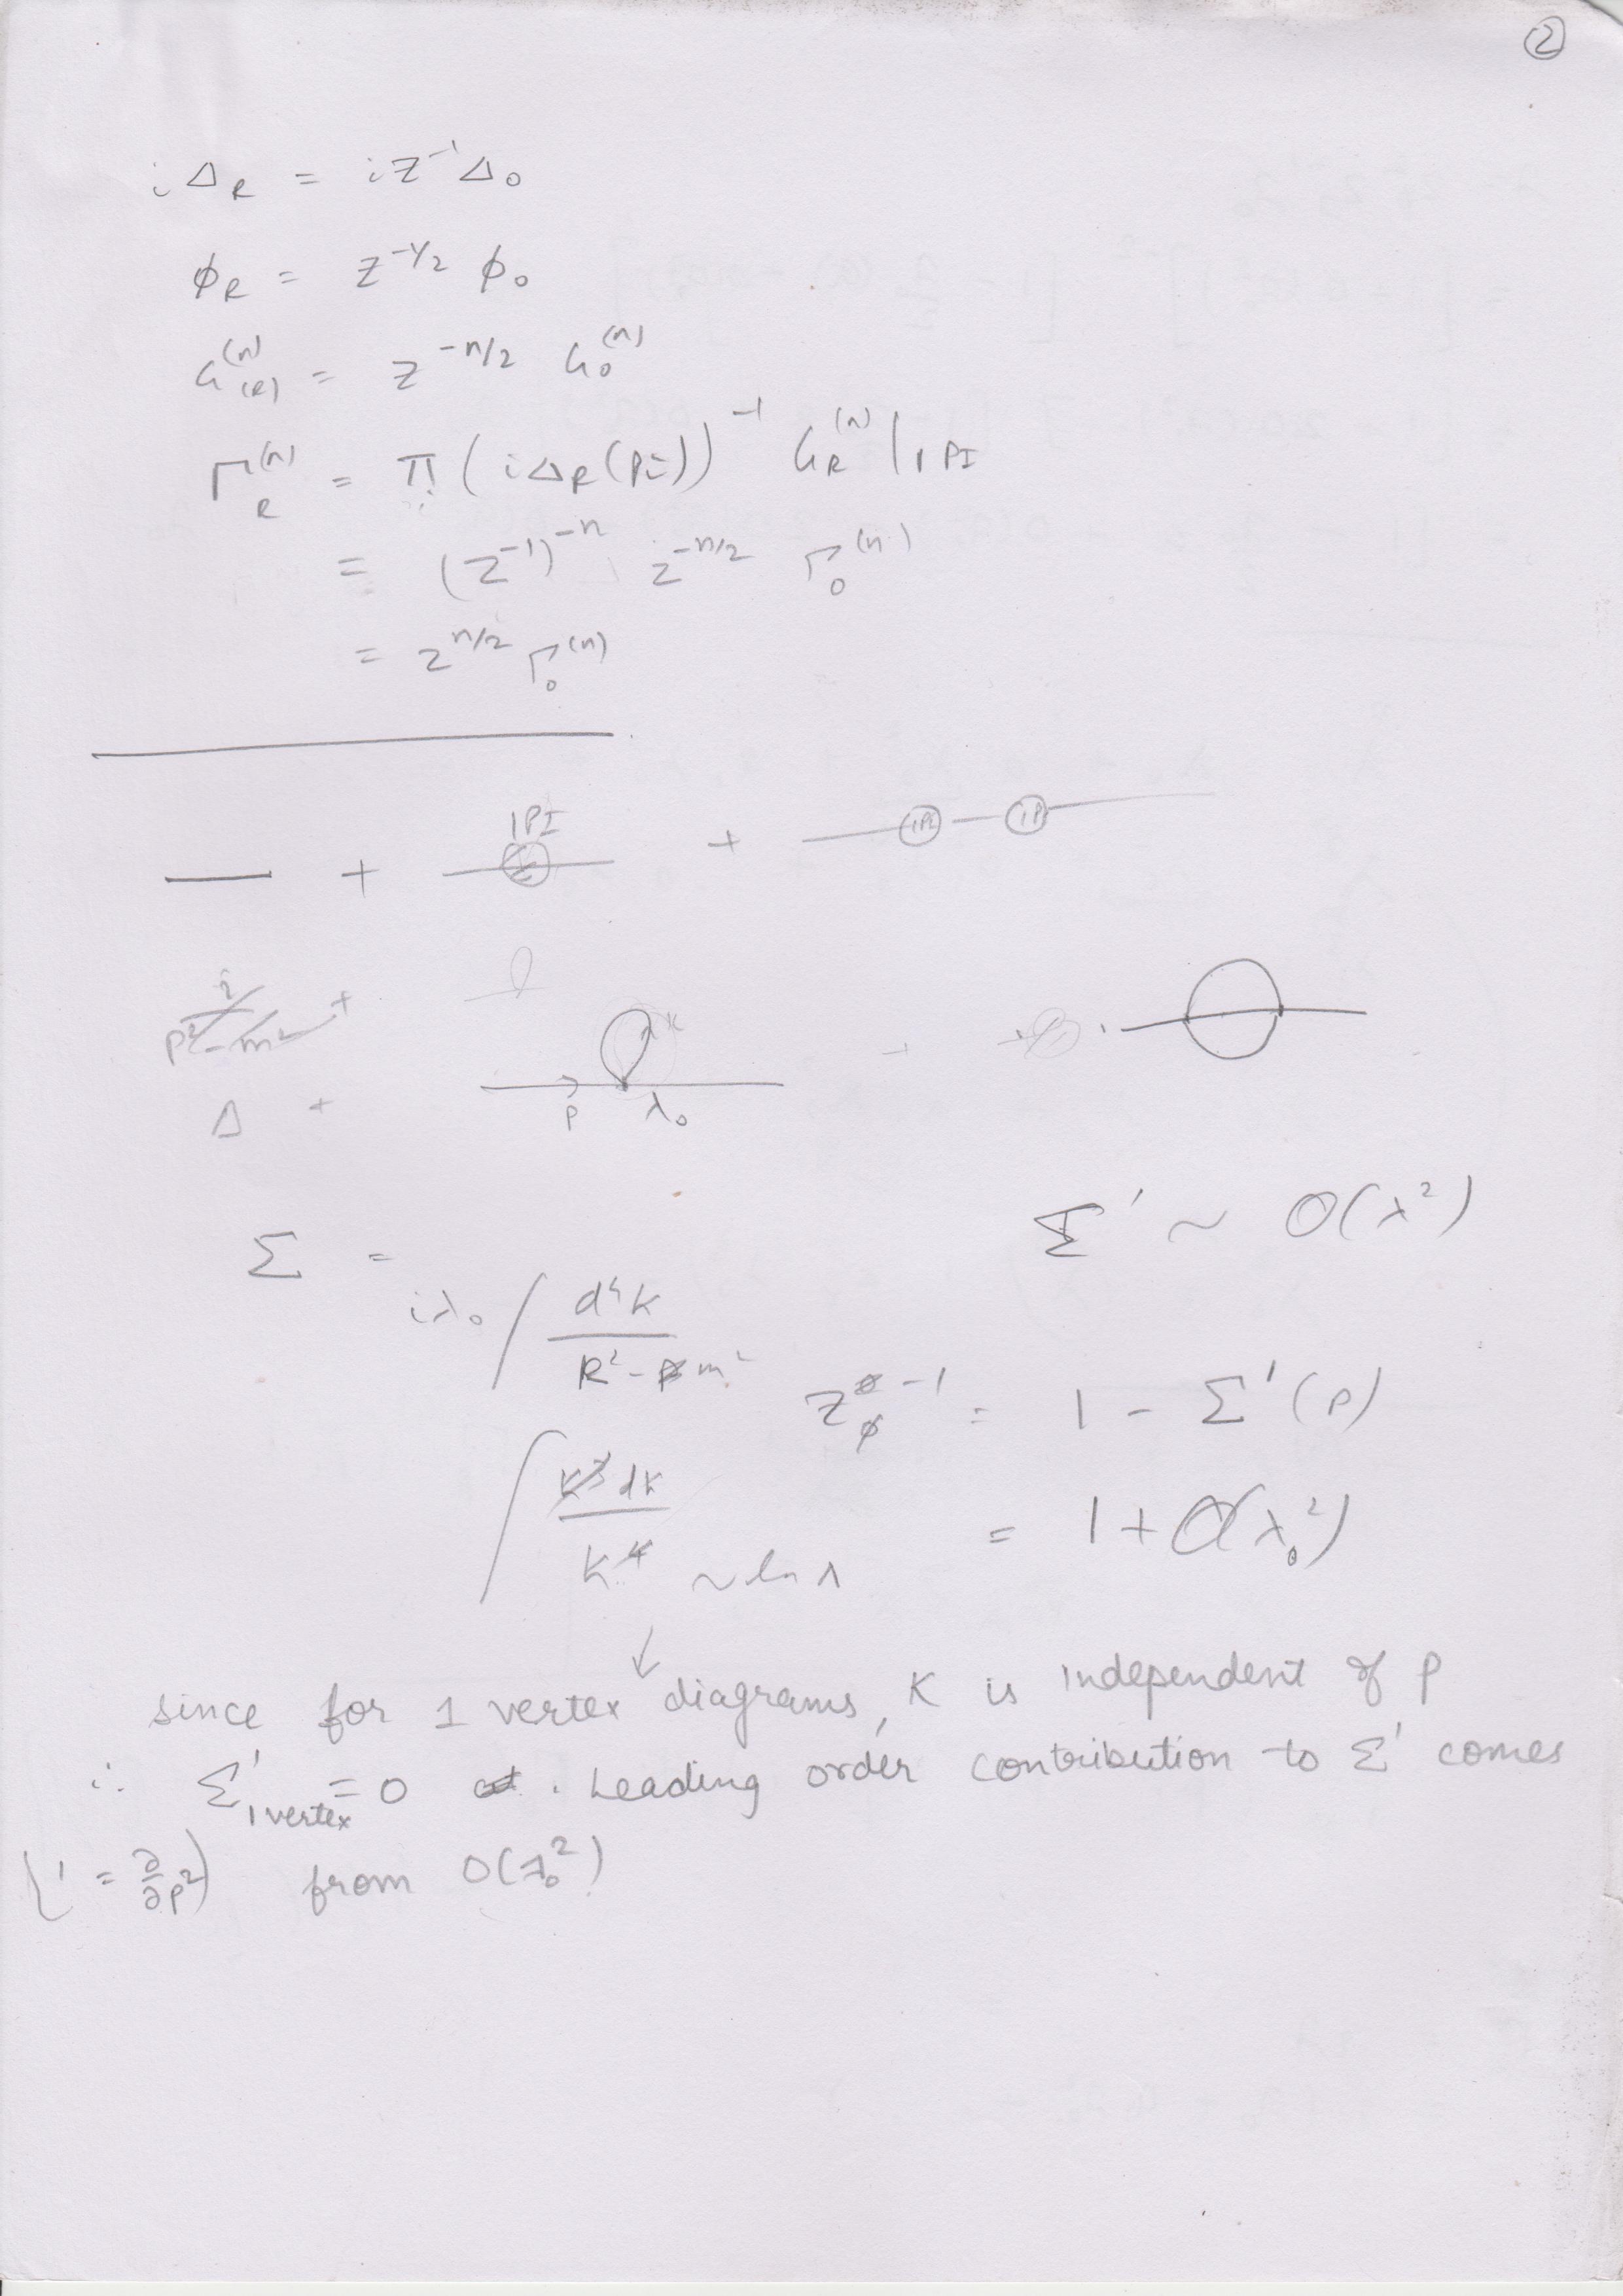 ②
i Δ_R = i Z^{-1} Δ_0
ϕ_R = Z^{-1/2} ϕ_0
G^{(n)}_{(R)} = Z^{-n/2} G_0^{(n)}
Γ_R^{(n)} = π_i (i Δ_R (p_i))^{-1} G_R^{(n)} |_{1PI}
= (Z^{-1})^{-n} Z^{-n/2} Γ_0^{(n)}
= Z^{n/2} Γ_0^{(n)}
1PI
+ + 1PI 1P
i / p^2 - m^2 +
k
Δ + p λ_0
Σ' ~ O(λ^2)
Σ = iλ_0 ∫ d^4k / k^2 - m^2
Z_ϕ^{-1} = 1 - Σ'(p)
∫ k^3 dk / k^4 ~ ln Λ
= 1 + O(λ_0^2)
↓
since for 1 vertex diagrams, K is independent of p
∴ Σ'_{1 vertex} = 0 . Leading order contribution to Σ' comes
(' = ∂/∂p^2) from O(λ_0^2)